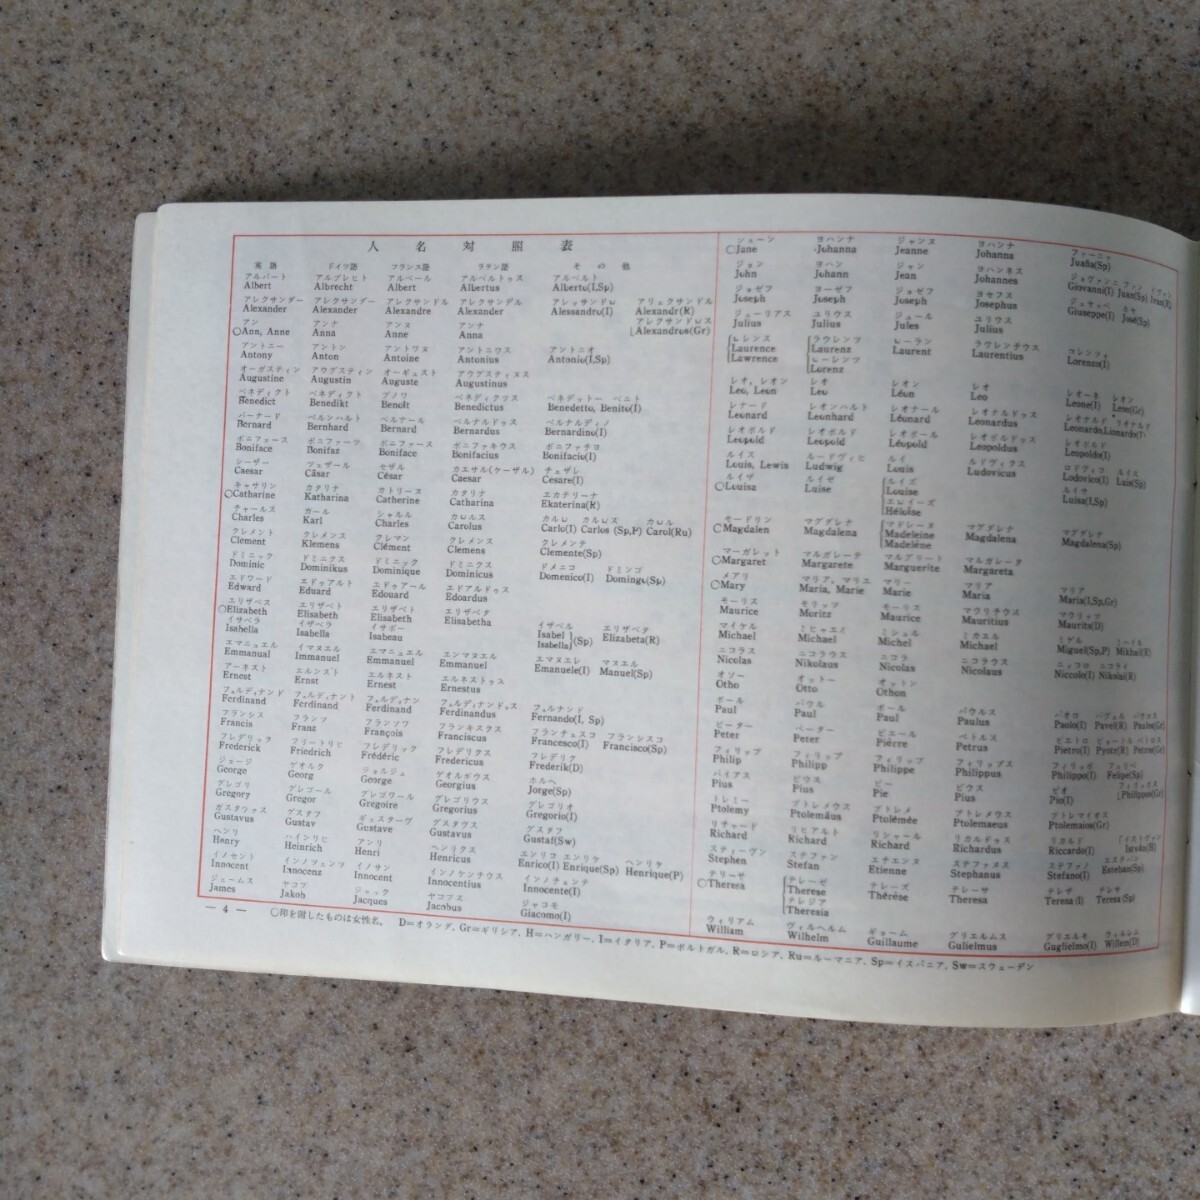 人名対照表
英語 ドイツ語 フランス語 ラテン語 その他
アルバート アルブレヒト アルベール アルベルトゥス アルベルト
Albert Albrecht Albert Albertus Alberto(I,Sp)
アレクサンダー アレクサンダー アレクサンドル アレクサンデル アレッサンドロ アリェクサンドル
Alexander Alexander Alexandre Alexander Alessandro(I) Alexandr(R)
アン アンナ アンヌ アンナ アレクサンドロス
○Ann, Anne Anna Anne Anna Alexandros(Gr)
アントニー アントン アントワヌ アントニウス アントニオ
Antony Anton Antoine Antonius Antonio(I,Sp)
オーガスティン アウグスティン オーギュスト アウグスティヌス
Augustine Augustin Auguste Augustinus
ベネディクト ベネディクト ブノワ ベネディクツス ベネデットー ベニト
Benedict Benedikt Benoît Benedictus Benedetto, Benito(I)
バーナード ベルンハルト ベルナール ベルナルドゥス ベルナルディノ
Bernard Bernhard Bernard Bernardus Bernardino(I)
ボニフェース ボニファーツ ボニファース ボニファキウス ボニファチヨ
Boniface Bonifaz Boniface Bonifacius Bonifacio(I)
シーザー ツェザール セザル カエサル(ケーザル) チェザレ
Caesar Cäsar César Caesar Cesare(I)
キャサリン カタリナ カトリーヌ カタリナ エカテリーナ
○Catharine Katharina Catherine Catharina Ekaterina(R)
チャールス カール シャルル カロルス カルロ カルロス カロル
Charles Karl Charles Carolus Carlo(I) Carlos (Sp,P) Carol(Ru)
クレメント クレメンス クレマン クレメンス クレメンテ
Clement Klemens Clément Clemens Clemente(Sp)
ドミニック ドミニクス ドミニック ドミニクス ドメニコ ドミンゴ
Dominic Dominikus Dominique Dominicus Domenico(I) Domingo(Sp)
エドワード エドゥアルト エドゥアール エドアルドゥス
Edward Eduard Edouard Edoardus
エリザベス エリザベト エリザベト エリザベタ
○Elizabeth Elisabeth Elisabeth Elisabetha
イサベラ イザベラ イサボー イザベル エリザベタ
Isabella Isabella Isabeau Isabel Isabella}(Sp) Elizabeta(R)
エマニュエル イマヌエル エマニュエル エンマヌエル エマヌエレ マヌエル
Emmanual Immanuel Emmanuel Emmanuel Emanuele(I) Manuel(Sp)
アーネスト エルンスト エルネスト エルネストゥス
Ernest Ernst Ernest Ernestus
フェルディナンド フェルディナント フェルディナン フェルディナンドゥス フェルナンド
Ferdinand Ferdinand Ferdinand Ferdinandus Fernando(I, Sp)
フランシス フランツ フランソワ フランキスクス フランチェスコ フランシスコ
Francis Franz François Franciscus Francesco(I) Francisco(Sp)
フレデリック フリートリヒ フレデリック フレデリクス フレデリク
Frederick Friedrich Frédéric Fredericus Frederik(D)
ジョージ ゲオルク ジョルジュ ゲオルギウス ホルヘ
George Georg George Georgius Jorge(Sp)
グレゴリ グレゴール グレゴワール グレゴリウス グレゴリオ
Gregory Gregor Gregoire Gregorius Gregorio(I)
ガスタヴァス グスタフ ギュスターヴ グスタウス グスタフ
Gustavus Gustav Gustave Gustavus Gustaf(Sw)
ヘンリ ハインリヒ アンリ ヘンリクス エンリコ エンリケ ヘンリケ
Henry Heinrich Henri Henricus Enrico(I) Enrique(Sp) Henrique(P)
イノセント インノツェンツ イノサン インノケンチウス インノチェンテ
Innocent Innocenz Innocent Innocentius Innocente(I)
ジェームス ヤコブ ジャック ヤコブス ジャコモ
James Jakob Jacques Jacobus Giacomo(I)
ジェーン ヨハンナ ジャンヌ ヨハンナ ファーニャ
○Jane Johanna Jeanne Johanna Juaña(Sp)
ジョン ヨハン ジャン ヨハンネス ジョヴァンニ ヴァン イヴァン
John Johann Jean Johannes Giovanni(I) Juan(Sp) Ivan(R)
ジョゼフ ヨーゼフ ジョゼフ ヨセフス ジュセッペ ホセ
Joseph Joseph Joseph Josephus Giuseppe(I) José(Sp)
ジューリアス ユリウス ジュール ユリウス
Julius Julius Jules Julius
ロレンス ラウレンツ ローラン ラウレンチウス ロレンツォ
Laurence Laurenz Laurent Laurentius Lorenzo(I)
Lawrence ローレンツ
Lorenz
レオ, レオン レオ レオン レオ レオーネ レオン
Leo, Leon Leo Léon Leo Leone(I) Leon(Gr)
レナード レオンハルト レオナール レオナルドゥス レオナルド リオナルド
Leonard Leonhard Léonard Leonardus Leonardo, Lionardo(I)
レオポルド レオポルド レオポール レオポルドゥス レオポルド
Leopold Leopold Léopold Leopoldus Leopoldo(I)
ルイス ルードヴィヒ ルイ ルドヴィクス ロドヴィコ ルイス
Louis, Lewis Ludwig Louis Ludovicus Lodovico(I) Luis(Sp)
ルイザ ルイゼ ルイズ ルイサ
○Louisa Luise Louise Luisa(I,Sp)
エロイーズ
Héloïse
モードリン マグダレナ マドレーヌ マグダレナ マグダレナ
○Magdalen Magdalena Madeleine Magdalena Magdalena(Sp)
Madelène
マーガレット マルガレーテ マルグリート マルガレータ
○Margaret Margarete Marguerite Margareta
メアリ マリア, マリエ マリー マリア マリア
○Mary Maria, Marie Marie Maria Maria(I,Sp,Gr)
モーリス モリッツ モーリス マウリチウス マウリッツ
Maurice Moritz Maurice Mauritius Maurits(D)
マイケル ミヒャエイ ミシェル ミカエル ミゲル ミハイル
Michael Michael Michel Michael Miguel(Sp,P) Mikhail(R)
ニコラス ニコラウス ニコラ ニコラウス ニッコロ ニコライ
Nicolas Nikolaus Nicolas Nicolaus Niccolo(I) Nikolai(R)
オソー オットー オットン
Otho Otto Othon
ポール パウル ポール パウルス パオロ パヴェル パウロス
Paul Paul Paul Paulus Paolo(I) Pavel(R) Paulos(Gr)
ピーター ペーター ピエール ペトルス ピエトロ ピョートル ペトロス
Peter Peter Piérre Petrus Pietro(I) Pyotr(R) Petros(Gr)
フィリップ フィリップ フィリップ フィリップス フィリッポ フェリペ
Philip Philipp Philippe Philippus Philippo(I) Felipe(Sp)
パイアス ピウス ピー ピウス ピオ フィリッポス
Pius Pius Pie Pius Pio(I) Philippos(Gr)
トレミー プトレメウス プトレメ プトレメウス プトレマイオス
Ptolemy Ptolemäus Ptolémée Ptolemaeus Ptolemaios(Gr)
リチャード リヒアルト リシャール リカルドゥス リカルド イストヴァン
Richard Richard Richard Richardus Riccardo(I) István(H)
スティーヴン ステファン エチエンヌ ステファヌス ステファノ エステバン
Stephen Stefan Etienne Stephanus Stefano(I) Esteban(Sp)
テリーサ テレーゼ テレーズ テレーサ テレサ テレサ
○Theresa Therese Thérèse Theresa Teresa (I) Teresa (Sp)
テレジア
Theresia
ウィリアム ヴィルヘルム ギョーム グリエルムス グリエルモ ウィルレム
William Wilhelm Guillaume Gulielmus Guglielmo(I) Willem(D)
— 4 — ○印を附したものは女性名。 D=オランダ, Gr=ギリシア, H=ハンガリー, I=イタリア, P=ポルトガル, R=ロシア, Ru=ルーマニア, Sp=イスパニア, Sw=スウェーデン